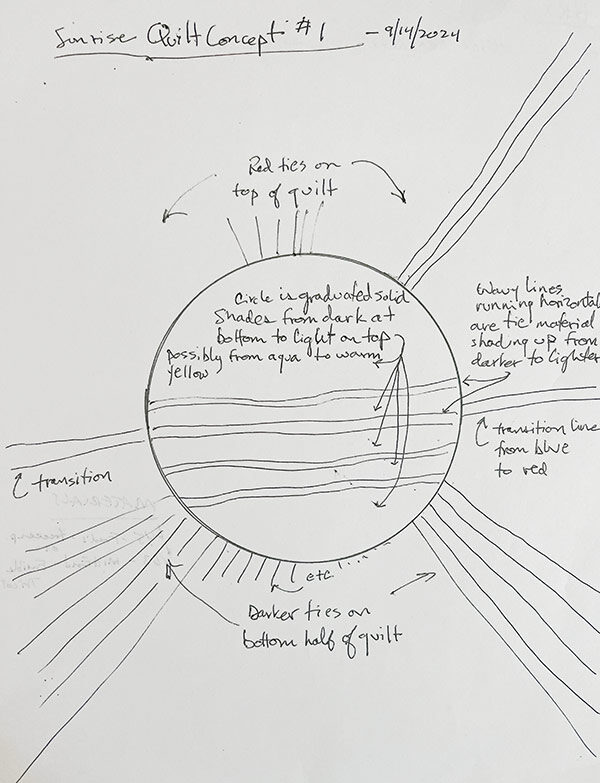 Sunrise Quilt Concept #1 - 9/14/2024
Red ties on
top of quilt
Circle is graduated solid
shades from dark at
bottom to light on top
possibly from aqua to warm
yellow
Wavy lines
running horizontal
are tie material
shading up from
darker to lighter
transition line
from blue
to red
transition
MATERIALS
etc
Darker ties on
bottom half of quilt